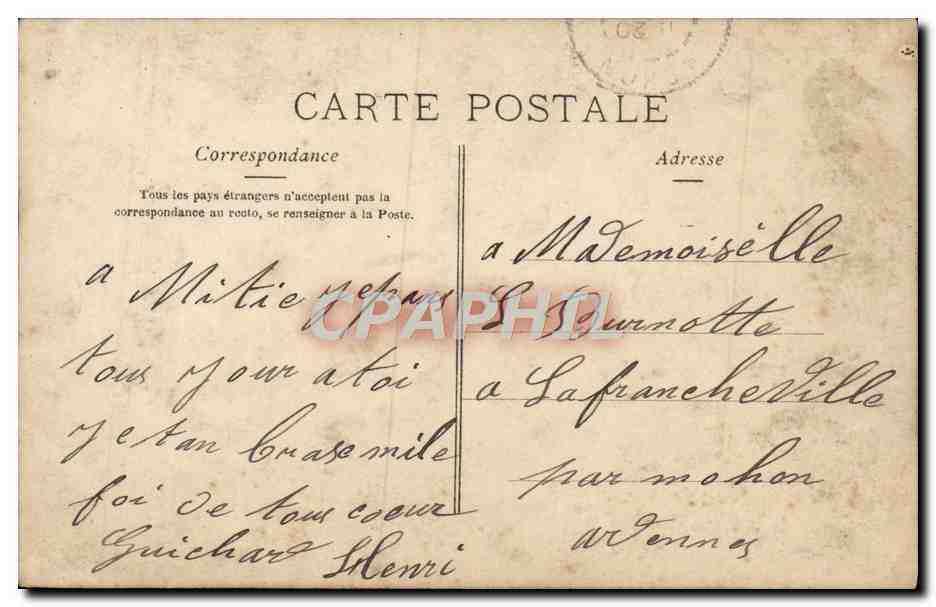 CARTE POSTALE
Correspondance
Tous les pays étrangers n'acceptent pas la
correspondance au recto, se renseigner à la Poste.
a Mitie je pans
tous jour a toi
je tan brase mile
foi de tous coeur
Guichard Henri
Adresse
a Mademoiselle
L Burnotte
a Lafrancheville
par mohon
ardennes
CPAPHIL